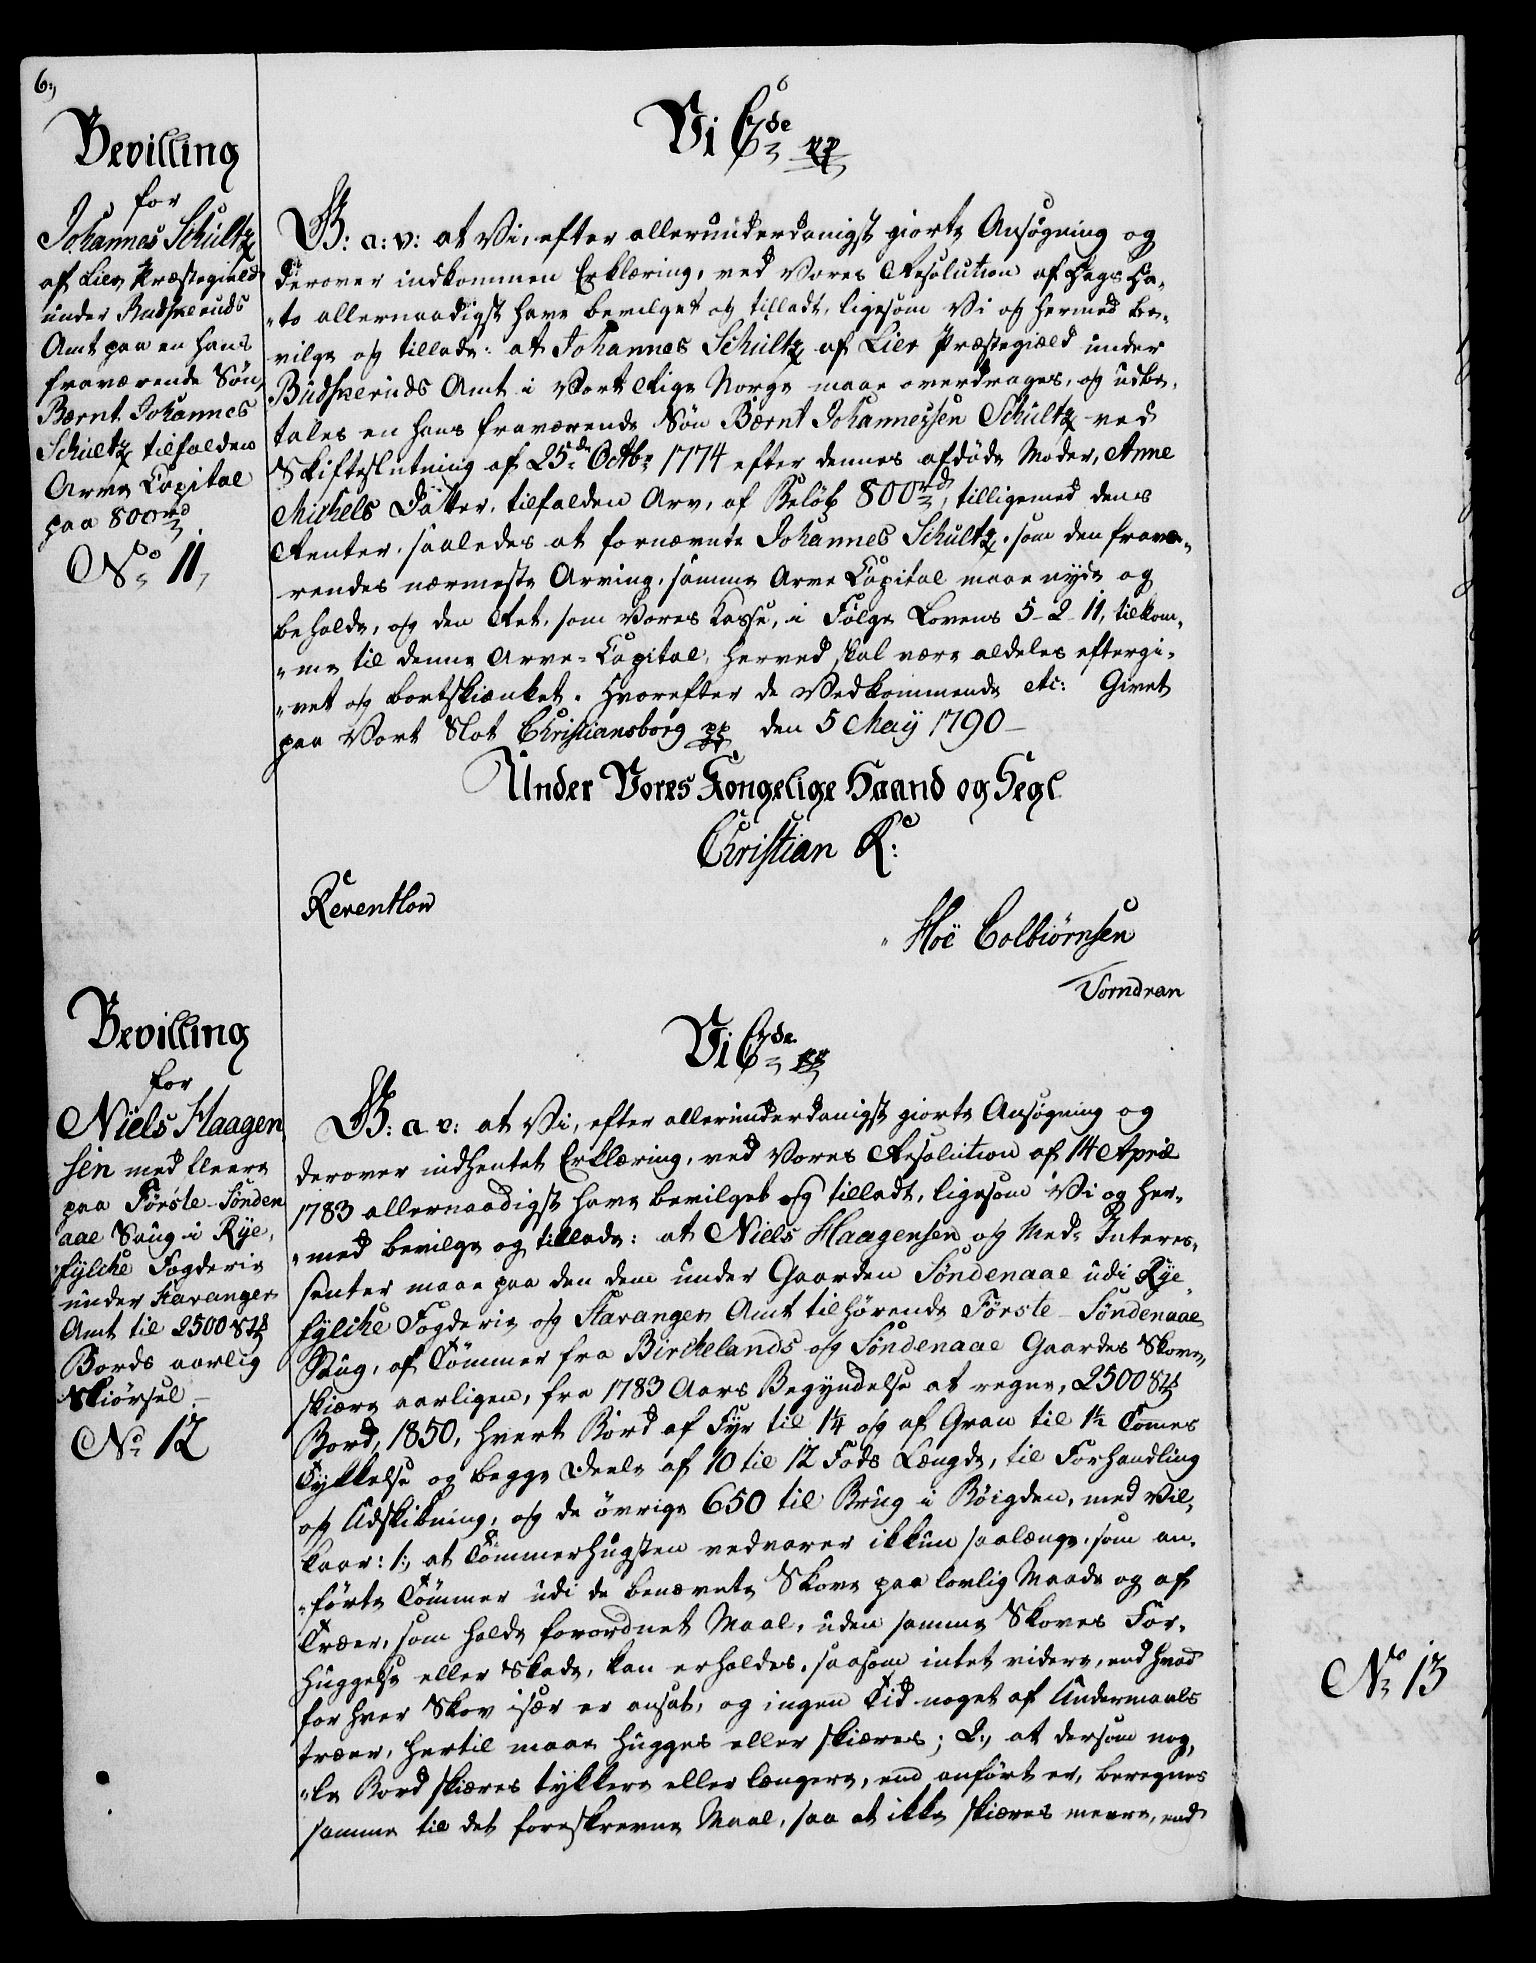 6:,
Bevilling
for
Johannes Schültz
af Lier Præstegield
under Budskeruds
Amt paa en hans
fraværende Søn,
Bærnt Johannes
Schültz tilfalden
Arve Capital
paa 800 rd
No 11,
Vi C 7de pp
G: a: v: at Vi, efter allerunderdanigst giorte Ansøgning og
derover indkommen Erklæring, ved Vores Resolution af Dags Da„
„to allernaadigst have bevilget og tilladt, ligesom Vi og hermed be„
vilge og tillade: at Johannes Schültz af Lier Præstegiæld under
Budskeruds Amt i Vort Rige Norge maae overdrages, og udbe„
tales en hans fraværende Søn Bærnt Johannessen Schültz ved
Skifteslutning af 25de Octbr 1774 efter dennes afdøde Moder, Anne
Michels Datter, tilfalden Arv, af Beløb 800 rd, tilligemed dens
Renter, saaledes at fornævnte Johannes Schültz, som den fravæ„
rendes nærmeste Arving, samme Arve Capital maae nyde og
beholde, og den Ret, som Vores Kasse, i Følge Lovens 5-2-11, tilkom„
„me til denne Arve-Capital, herved skal være aldeles eftergi„
„vet og bortskiænket. Hvorefter de Vedkommende etc: Givet
paa Vort Slot Christiansborg pp den 5 May 1790
Under Vores Kongelige Haand og Segl
Christian R:
Reventlow
Hoë Colbiørnsen
Vorndran
Bevilling
for
Niels Haagen
sen med fleere
paa Første-Sønden
aae Saug i Rye,
fylcke Fogderie
under Stavanger
Amt til 2500 Stk
Bords aarlig
Skiørsel
No 12
Vi C 7de pp
G: a v: at Vi, efter allerunderdanigst giorte Ansøgning og
derover indhentet Erklæring, ved Vores Resolution af 14 April
1783 allernaadigst have bevilget og tilladt, ligesom Vi og her„
„med bevilge og tillade: at Niels Haagensen og Med-Interes„
senter maae paa den dem under Gaarden Søndenaae udi Rye„
fylcke Fogderie og Stavanger Amt tilhørende Første-Søndenaae
Saug, af Tømmer fra Birckelands og Søndenaae Gaardes Skove,
skiære aarligen, fra 1783 Aars Begyndelse at regne, 2500 Stk
Bord, 1850, hvert Bord af Fyr til 1¼ og af Gran til 1½ Tomes
Tykkelse og begge Deele af 10 til 12 Fods Længde, til Forhandling
og Udskibning, og de øvrige 650 til Brug i Bøigden, med Vil„
kaar: 1:, at Tømmerhugsten vedvarer ikkun saalænge, som an„
„førte Tømmer udi de benævnte Skove paa lovlig Maade og af
Træer, som holde forordnet Maal, uden samme Skoves For„
huggelse eller Skade, kan erholdes, saasom intet videre, end hvad
for hver Skov især er ansat, og ingen Tid noget af Undermaals
træer, hertil maae hugges eller skiæres; 2:, at dersom nog„
„le Bord skiæres tykkere eller længere, end anført er, beregnes
samme til det foreskrevne Maal, saa at ikke skiæres meere, end
No 13